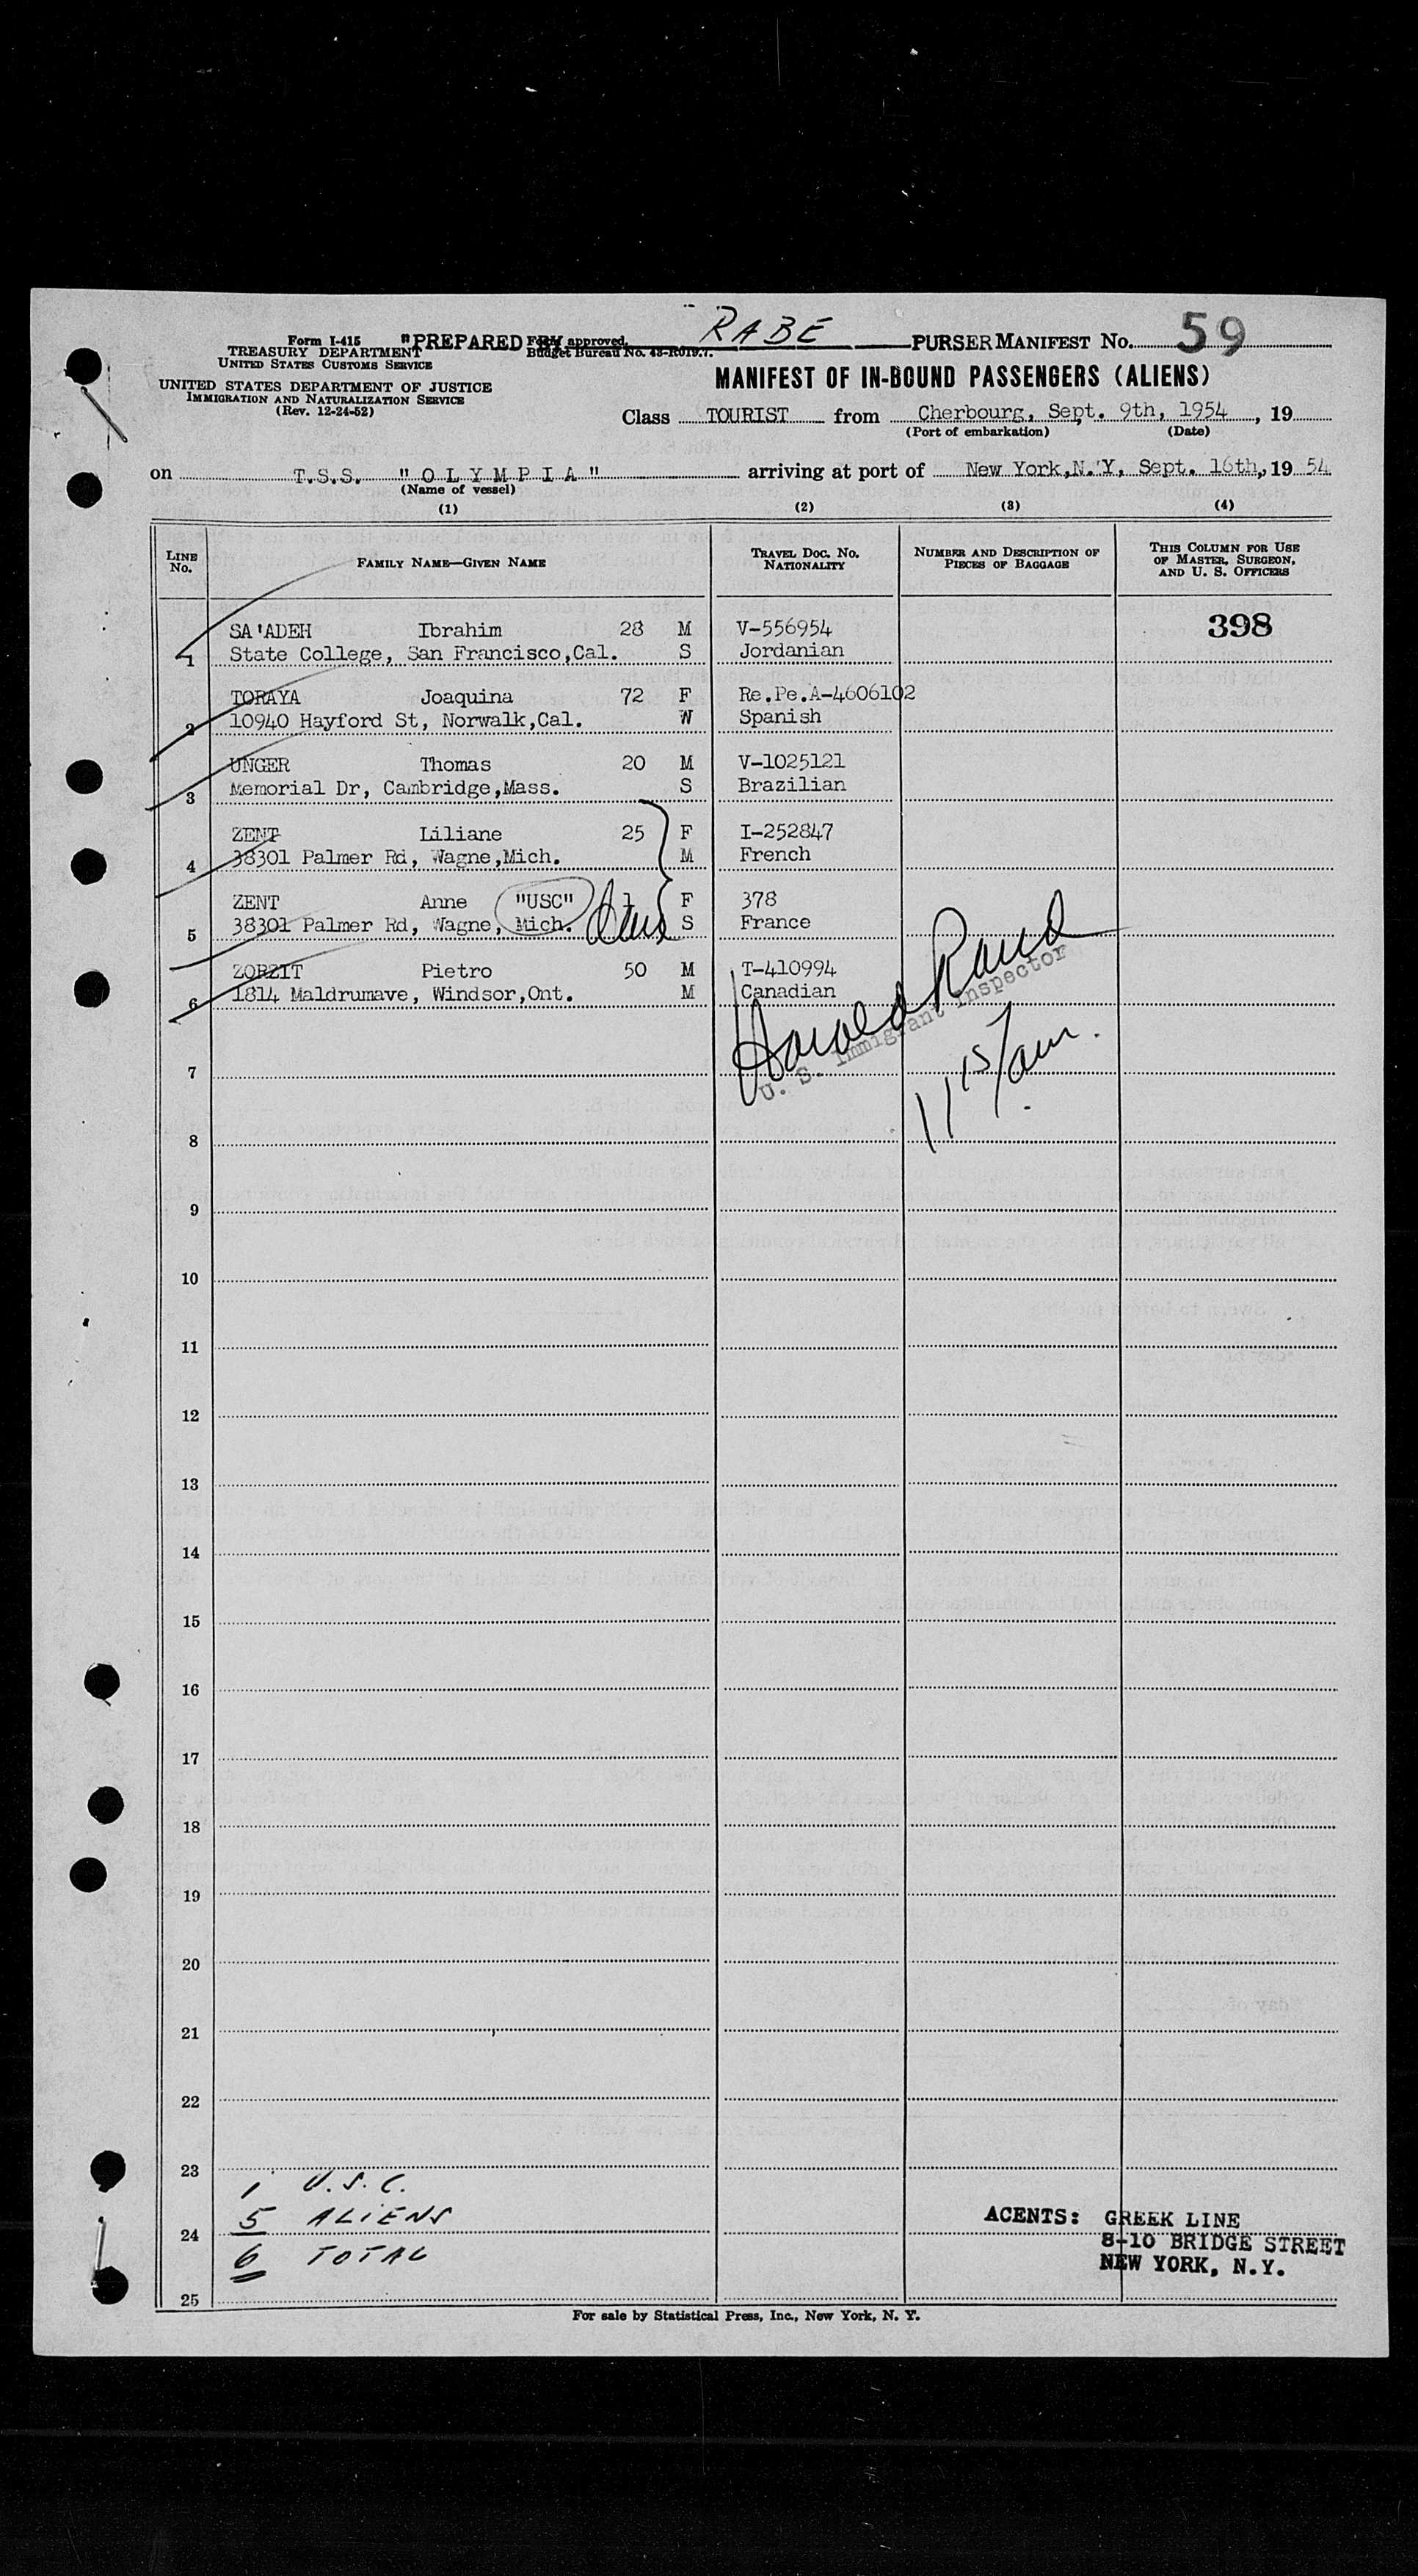 RABE
59
Form I-415
TREASURY DEPARTMENT
UNITED STATES CUSTOMS SERVICE
"PREPARED BY
Form approved.
Budget Bureau No. 43-R019.7.
PURSER MANIFEST No.
UNITED STATES DEPARTMENT OF JUSTICE
IMMIGRATION AND NATURALIZATION SERVICE
(Rev. 12-24-52)
MANIFEST OF IN-BOUND PASSENGERS (ALIENS)
Class TOURIST from Cherbourg, Sept. 9th, 1954, 19
(Port of embarkation) (Date)
on T.S.S. "OLYMPIA" arriving at port of New York,N.Y, Sept. 16th,, 19 54
(Name of vessel)
(1) (2) (3) (4)
LINE No. FAMILY NAME—GIVEN NAME TRAVEL DOC. NO. NATIONALITY NUMBER AND DESCRIPTION OF PIECES OF BAGGAGE THIS COLUMN FOR USE OF MASTER, SURGEON, AND U. S. OFFICERS
398
SA'ADEH Ibrahim 28 M V-556954
1 State College, San Francisco,Cal. S Jordanian
TORAYA Joaquina 72 F Re.Pe.A-4606102
2 10940 Hayford St, Norwalk,Cal. W Spanish
UNGER Thomas 20 M V-1025121
3 Memorial Dr, Cambridge,Mass. S Brazilian
ZENT Liliane 25 F I-252847
4 38301 Palmer Rd, Wagne,Mich. M French
ZENT Anne "USC" F 378
5 38301 Palmer Rd, Wagne, Mich. S France
ZORZIT Pietro 50 M T-410994
6 1814 Maldrumave, Windsor,Ont. M Canadian
Harold Rand
U. S. Immigrant Inspector
11 15/am.
7
8
9
10
11
12
13
14
15
16
17
18
19
20
21
22
23
1 U.S.C.
5 ALIENS
24
6 TOTAL
25
AGENTS: GREEK LINE
8-10 BRIDGE STREET
NEW YORK, N.Y.
For sale by Statistical Press, Inc., New York, N. Y.